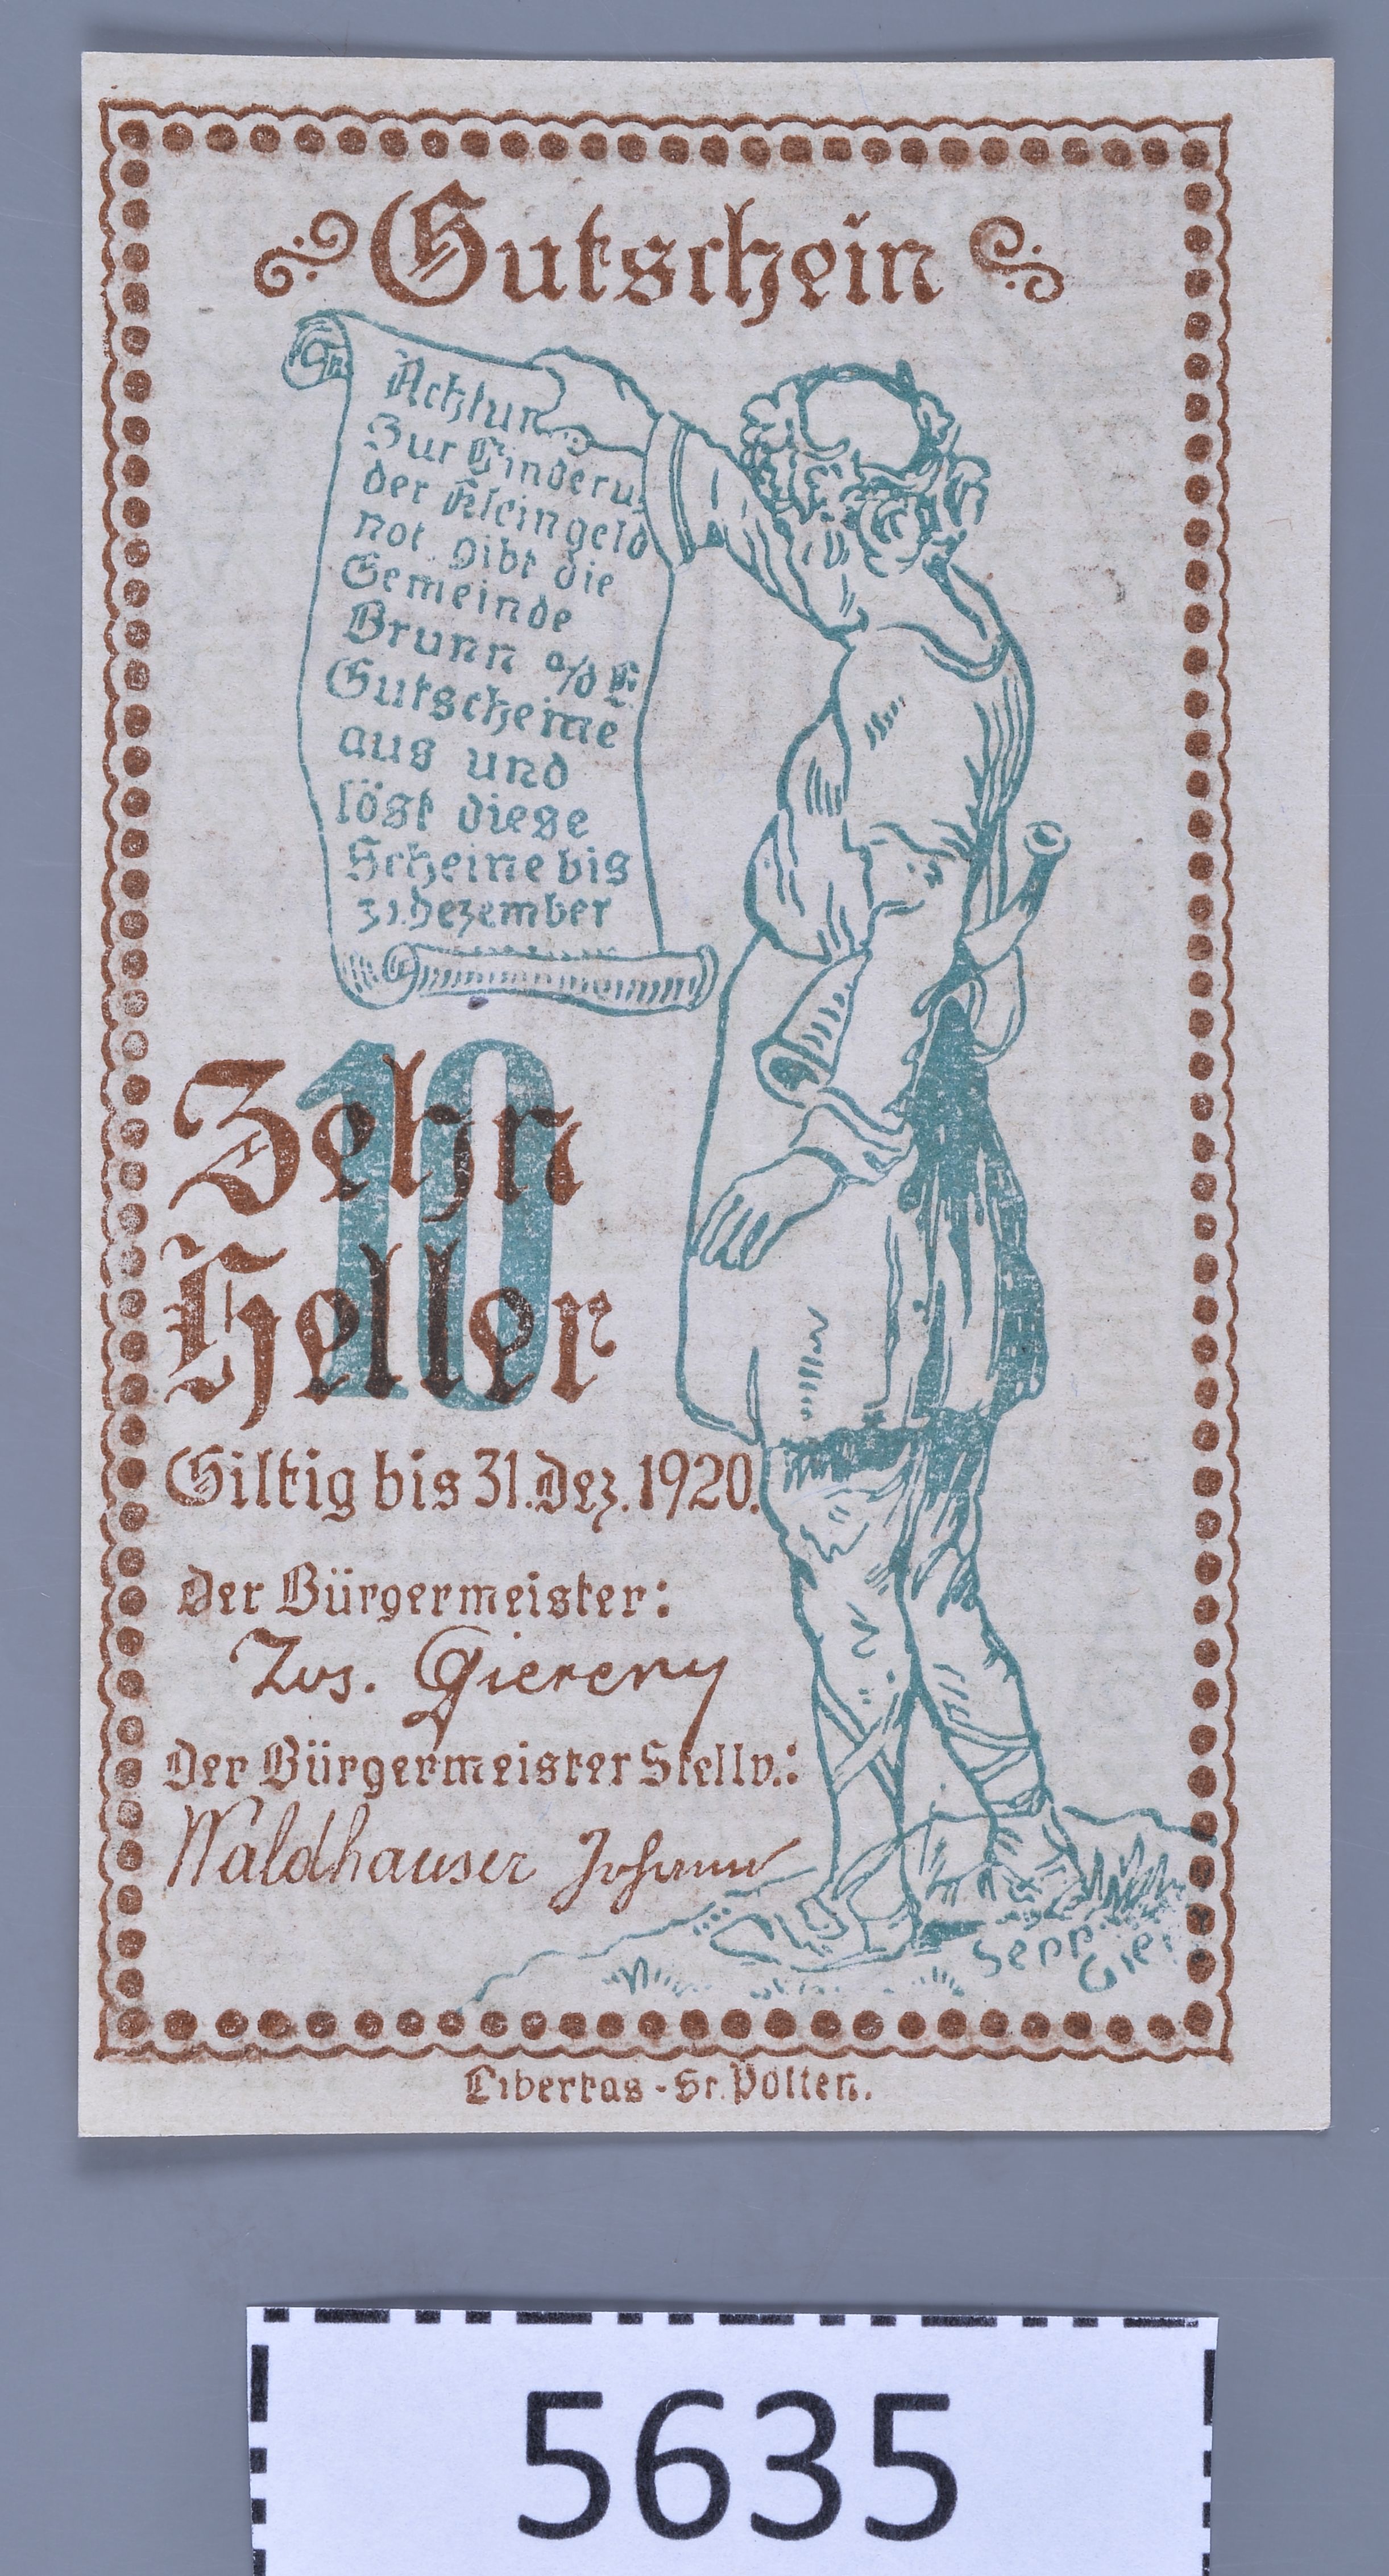 Gutschein
Achtun
Zur Linderu
der Kleingeld
not gibt die
Gemeinde
Brunn a/d E.
Gutscheine
aus und
löst diese
Scheine bis
31. Dezember
10
Zehn
Heller
Giltig bis 31. Dez. 1920.
Der Bürgermeister:
Jos. Giereny
Der Bürgermeister Stellv.:
Waldhauser Johann
Sepp
Gie
Libertas - St. Pölten.
5635